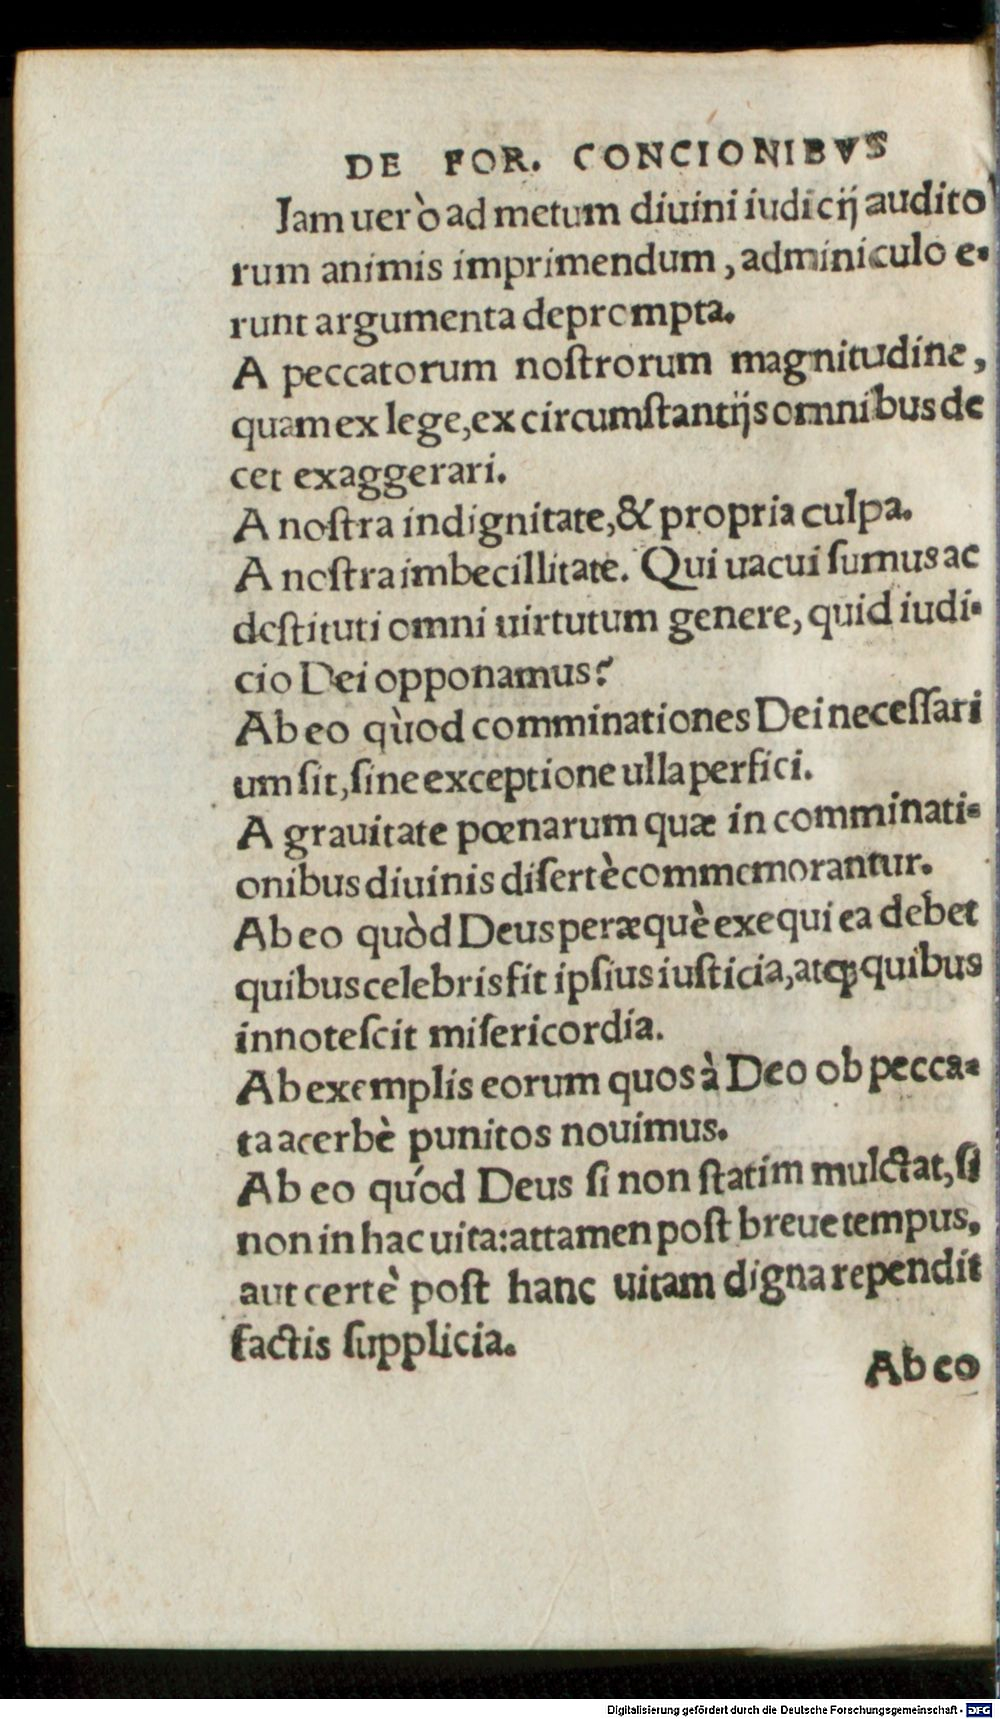 DE FOR. CONCIONIBVS
Iam uerò ad metum diuini iudicij audito
rum animis imprimendum, adminiculo e-
runt argumenta deprompta.
A peccatorum noſtrorum magnitudine,
quam ex lege, ex circumſtantijs omnibus de
cet exaggerari.
A noſtra indignitate, & propria culpa.
A noſtra imbecillitate. Qui uacui ſumus ac
deſtituti omni uirtutum genere, quid iudi-
cio Dei opponamus?
Ab eo qùod comminationes Dei neceſſari
um ſit, ſine exceptione ulla perfici.
A grauitate pœnarum quæ in comminati-
onibus diuinis diſertè commemorantur.
Ab eo quòd Deus peræquè exequi ea debet
quibus celebris fit ipſius iuſticia, atq; quibus
innoteſcit miſericordia.
Ab exemplis eorum quos à Deo ob pecca-
ta acerbè punitos nouimus.
Ab eo qúod Deus ſi non ſtatim mulctat, ſi
non in hac uita: attamen poſt breue tempus,
aut certè poſt hanc uitam digna rependit
factis ſupplicia.
Ab eo
Digitalisierung gefördert durch die Deutsche Forschungsgemeinschaft - DFG